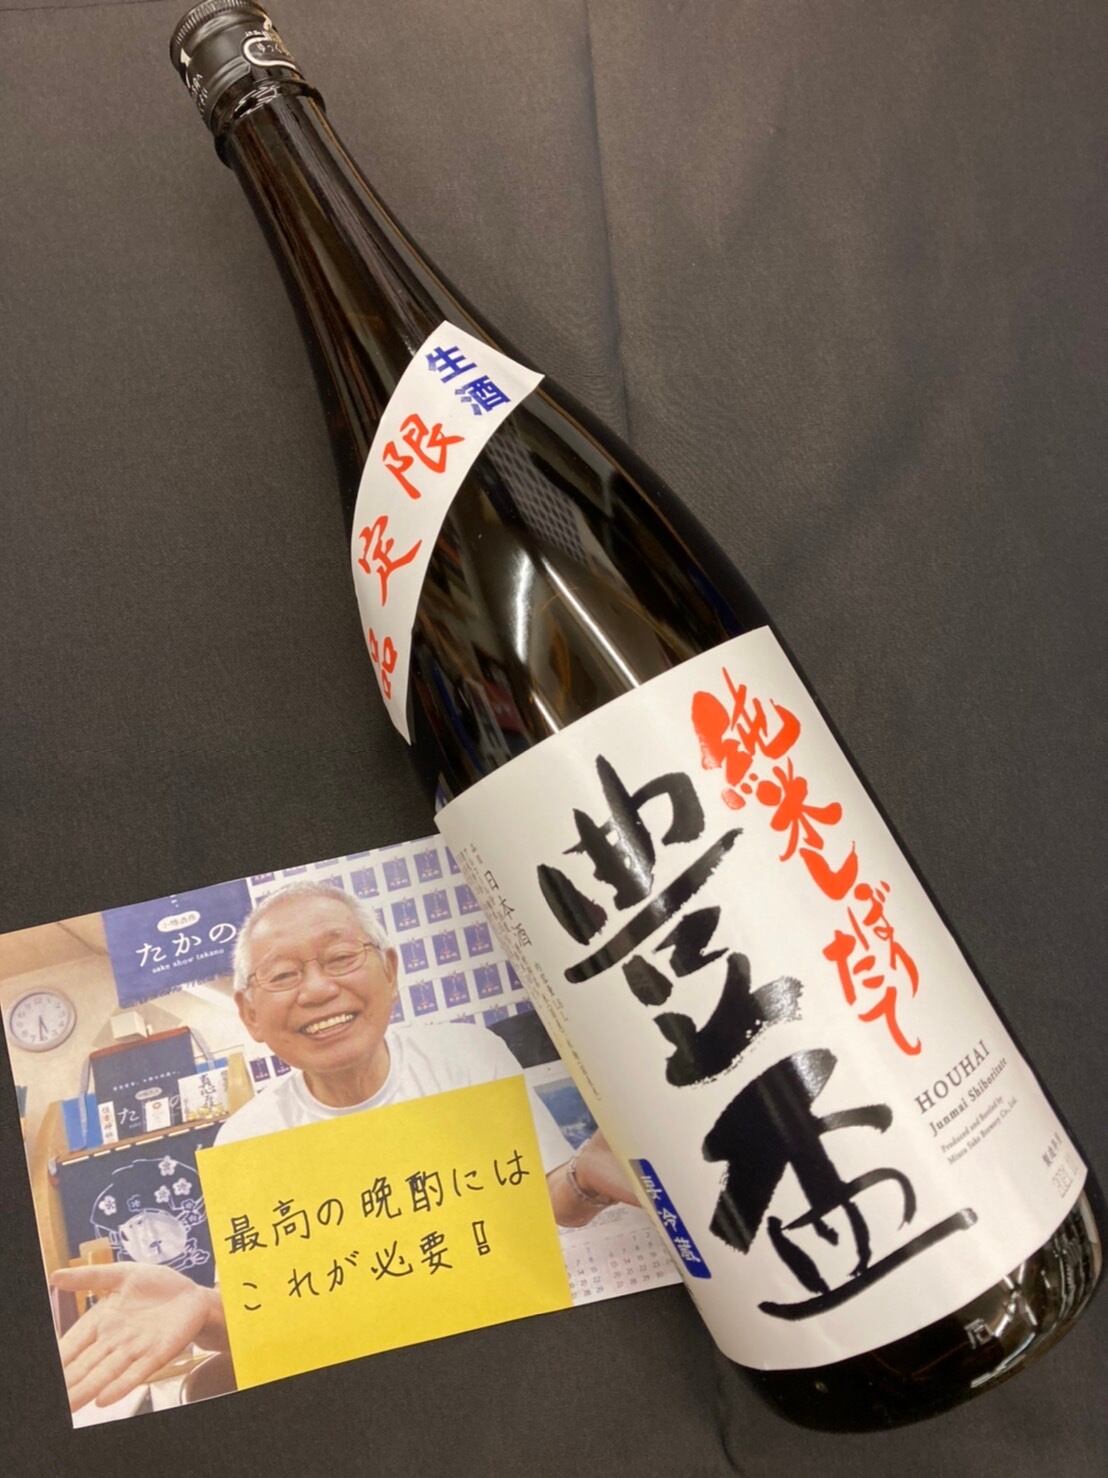 生酒
限定品
純米しぼりたて
豊盃
日本酒
HOUHAI
Junmai Shiboritate
Produced and Bottled by
Miura Sake Brewery Co., Ltd.
製造年月
要冷蔵
たかの
sake show takano
最高の晩酌には
これが必要!